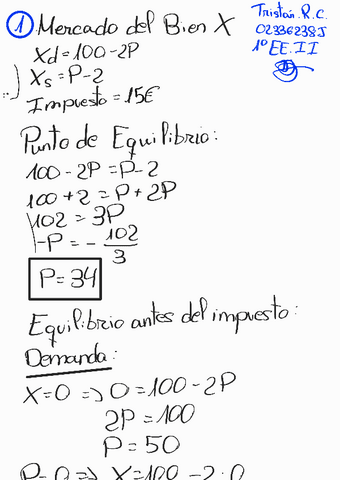 ① Mercado del Bien X
Tristán. R. C.
02336238J
1º EE. II
Xd = 100 - 2P
Xs = P - 2
Impuesto = 15€
Punto de Equilibrio:
100 - 2P = P - 2
100 + 2 = P + 2P
102 = 3P
-P = - 102/3
P = 34
Equilibrio antes del impuesto:
Demanda:
X = 0 => 0 = 100 - 2P
2P = 100
P = 50
P = 0 => X = 100 - 2·0